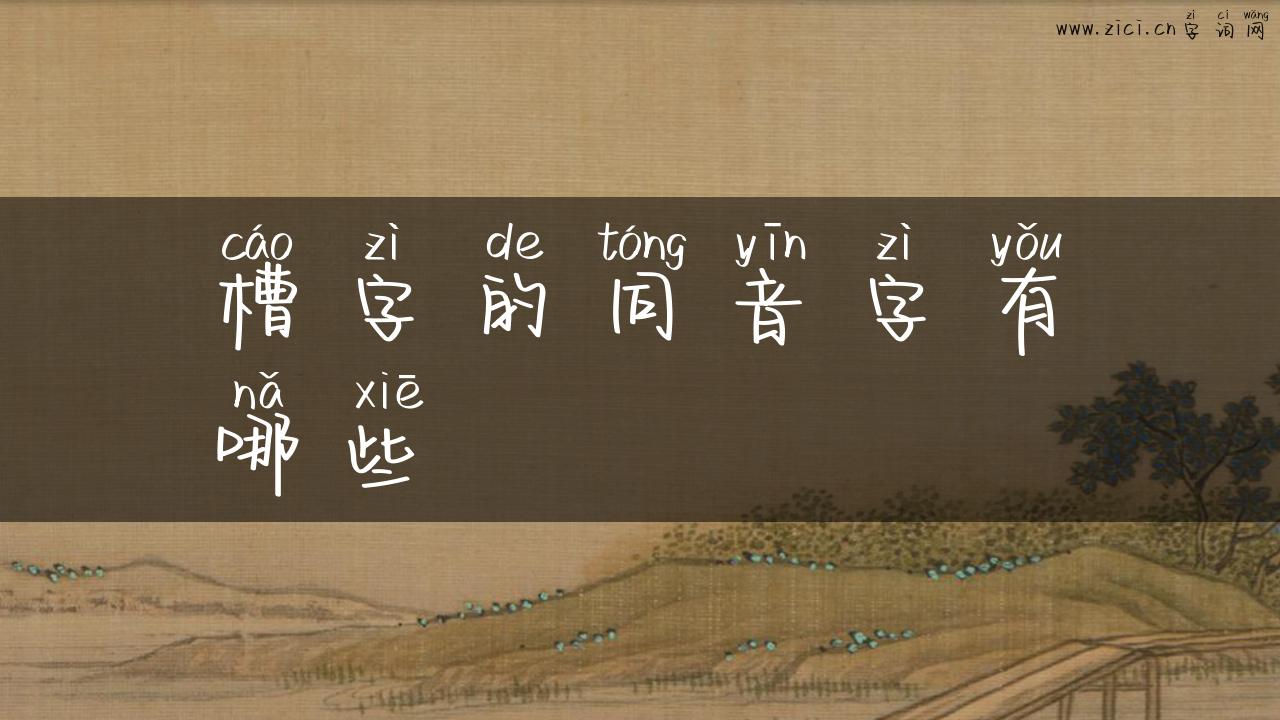 zì cí wǎng
www.zici.cn 字 词 网
cáo zì de tóng yīn zì yǒu
槽 字 的 同 音 字 有
nǎ xiē
哪 些